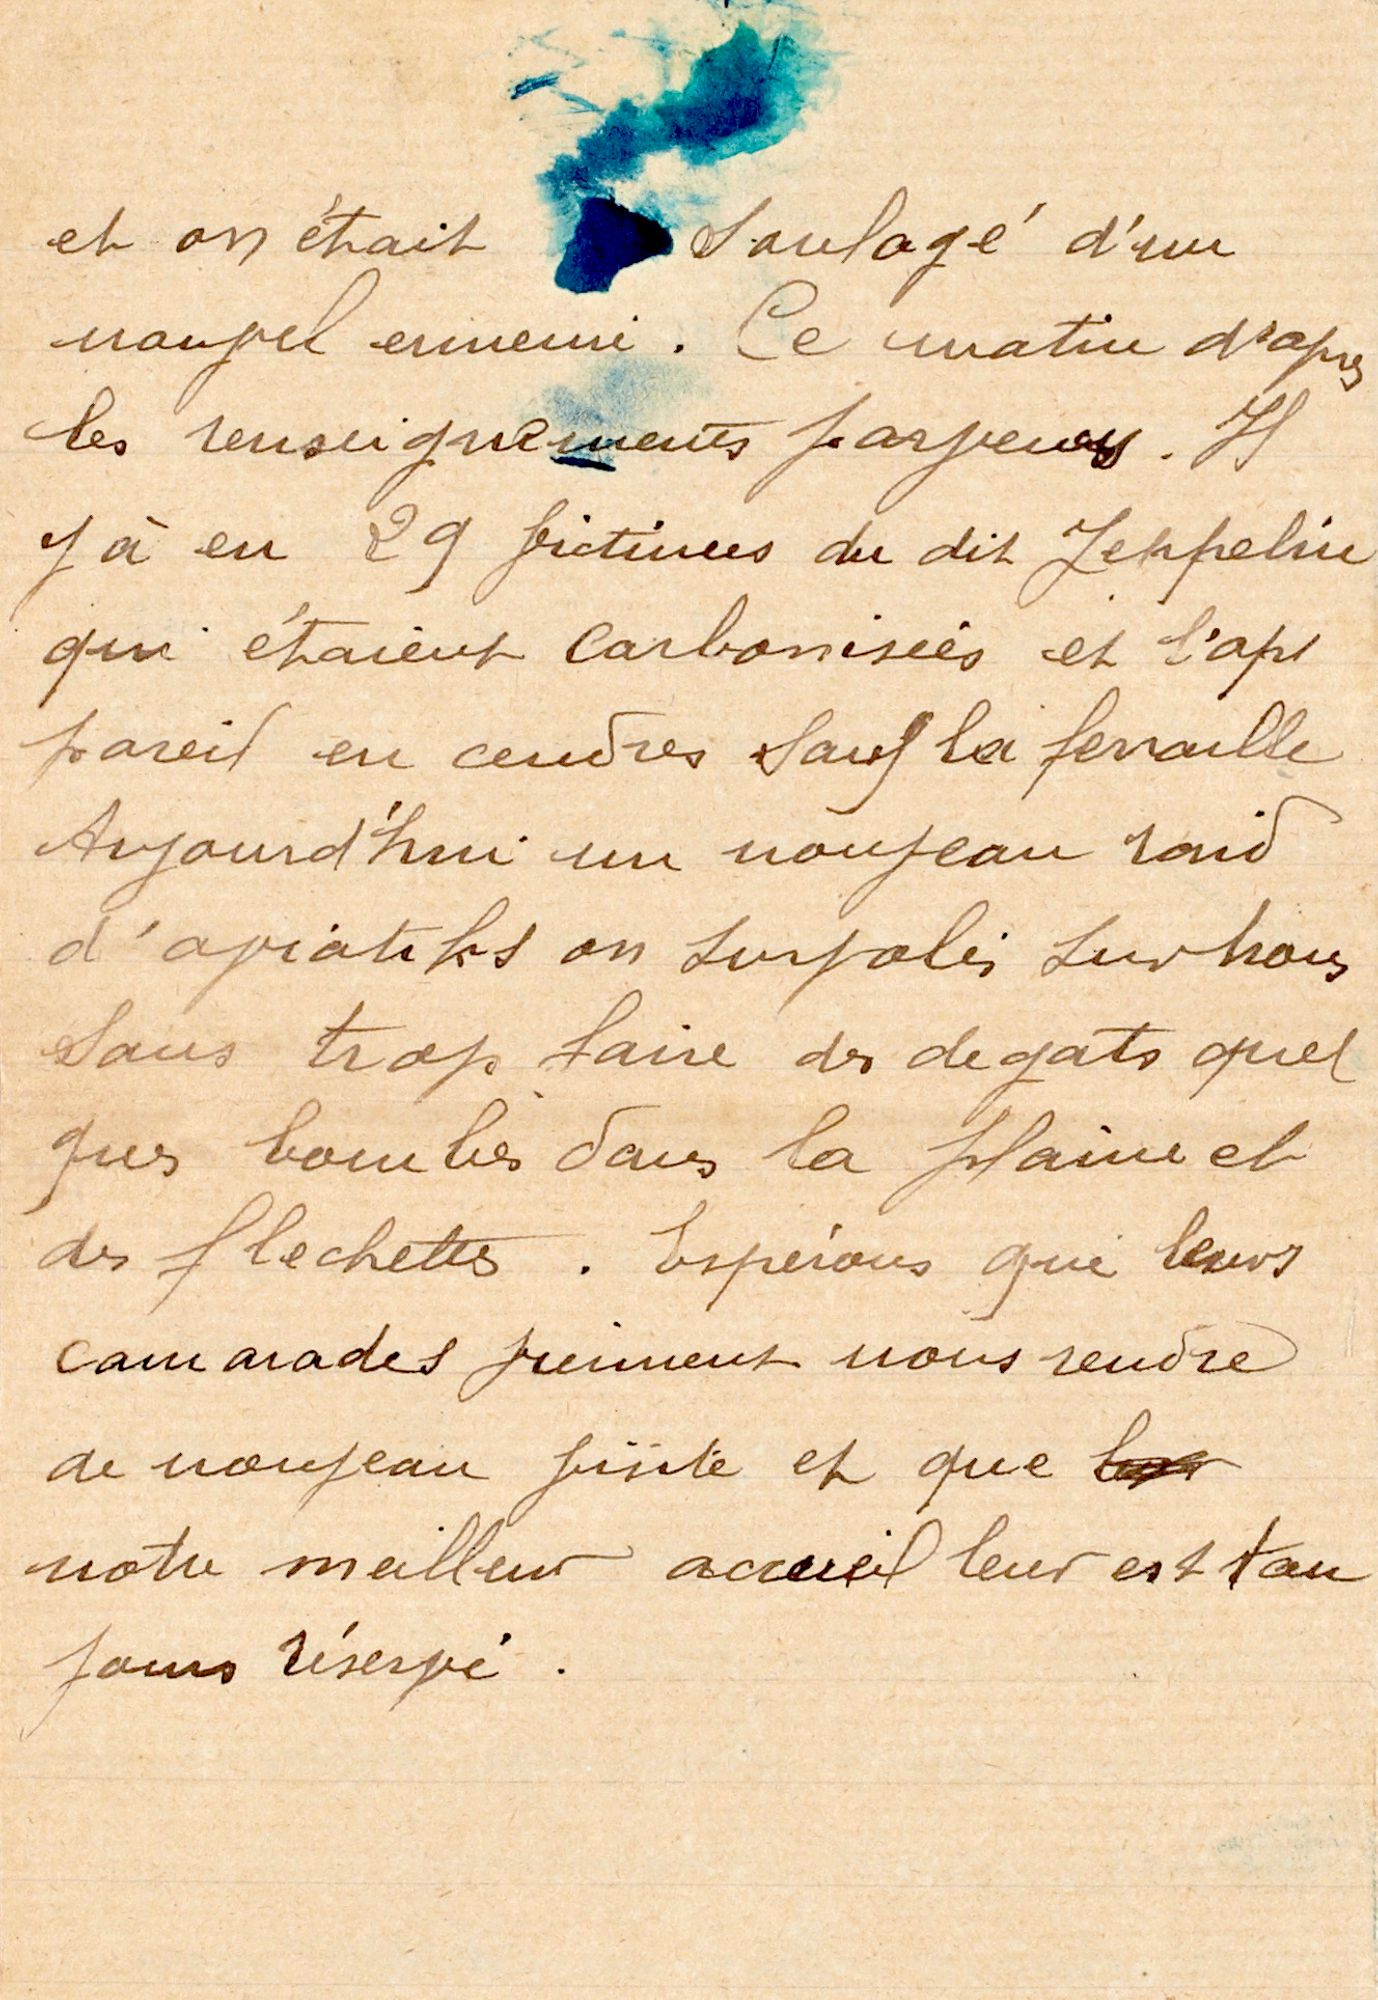 et on était soulagé d'un
nouvel ennemi. Ce matin d'apres
les renseignements parvenus. Il
y à eu 29 victimes du dit Zeppelin
qui étaient carbonisées et l'ap
pareil en cendres sauf la ferraille
Aujourd'hui un nouveau raid
d'aviatiks on survolés sur nous
sans trop faire des degats quel
ques bombes dans la plaine et
des flechettes. Espérons que leurs
camarades viennent nous rendre
de nouveau visite et que
notre meilleur accueil leur est tou
jours réservé.